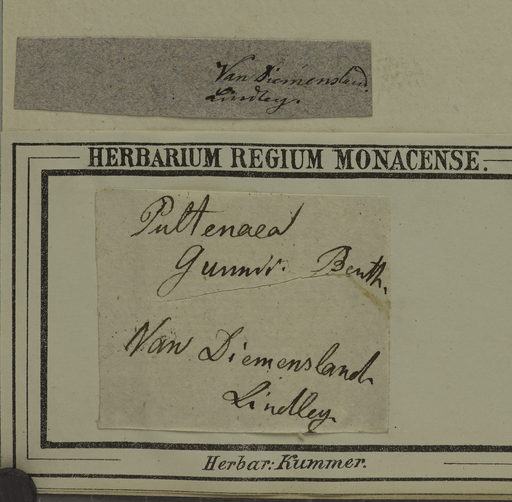 Van Diemensland.
Lindley.
HERBARIUM REGIUM MONACENSE.
Pultenaea
Gunnii. Benth.
Van Diemensland
Lindley.
Herbar: Kummer.